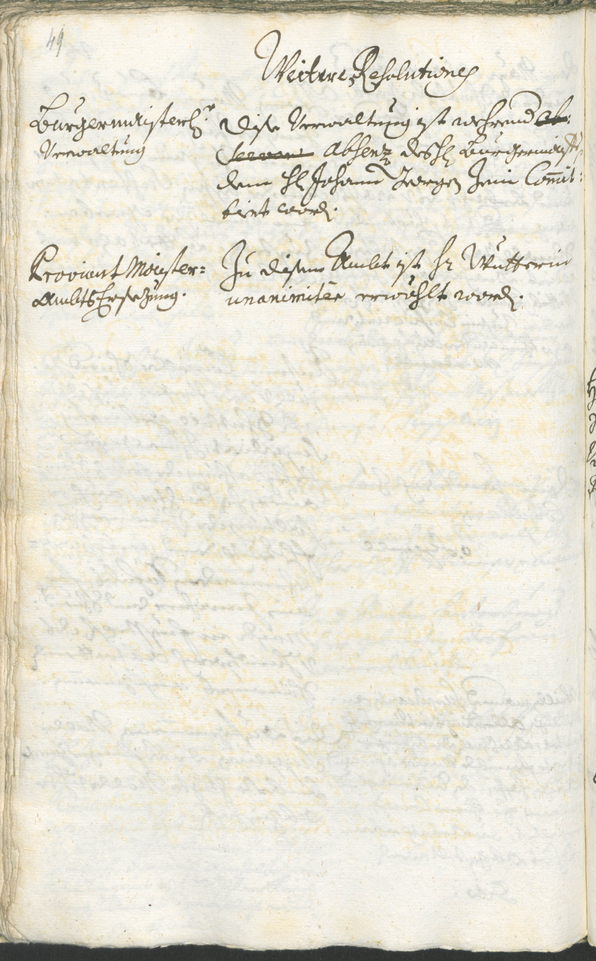 49
Weitere Resolutiones
Burgermaisterl:
Verwaltung
Dise Verwaltung ist wehrend
Absenz des H: Burgermaist:
dem H: Johann Georgen Committ:
tirt word:
Proviant Maister-
Ambts Ersezung.
Zu disem Ambt ist Hr
unanimiter erwöhlt word: